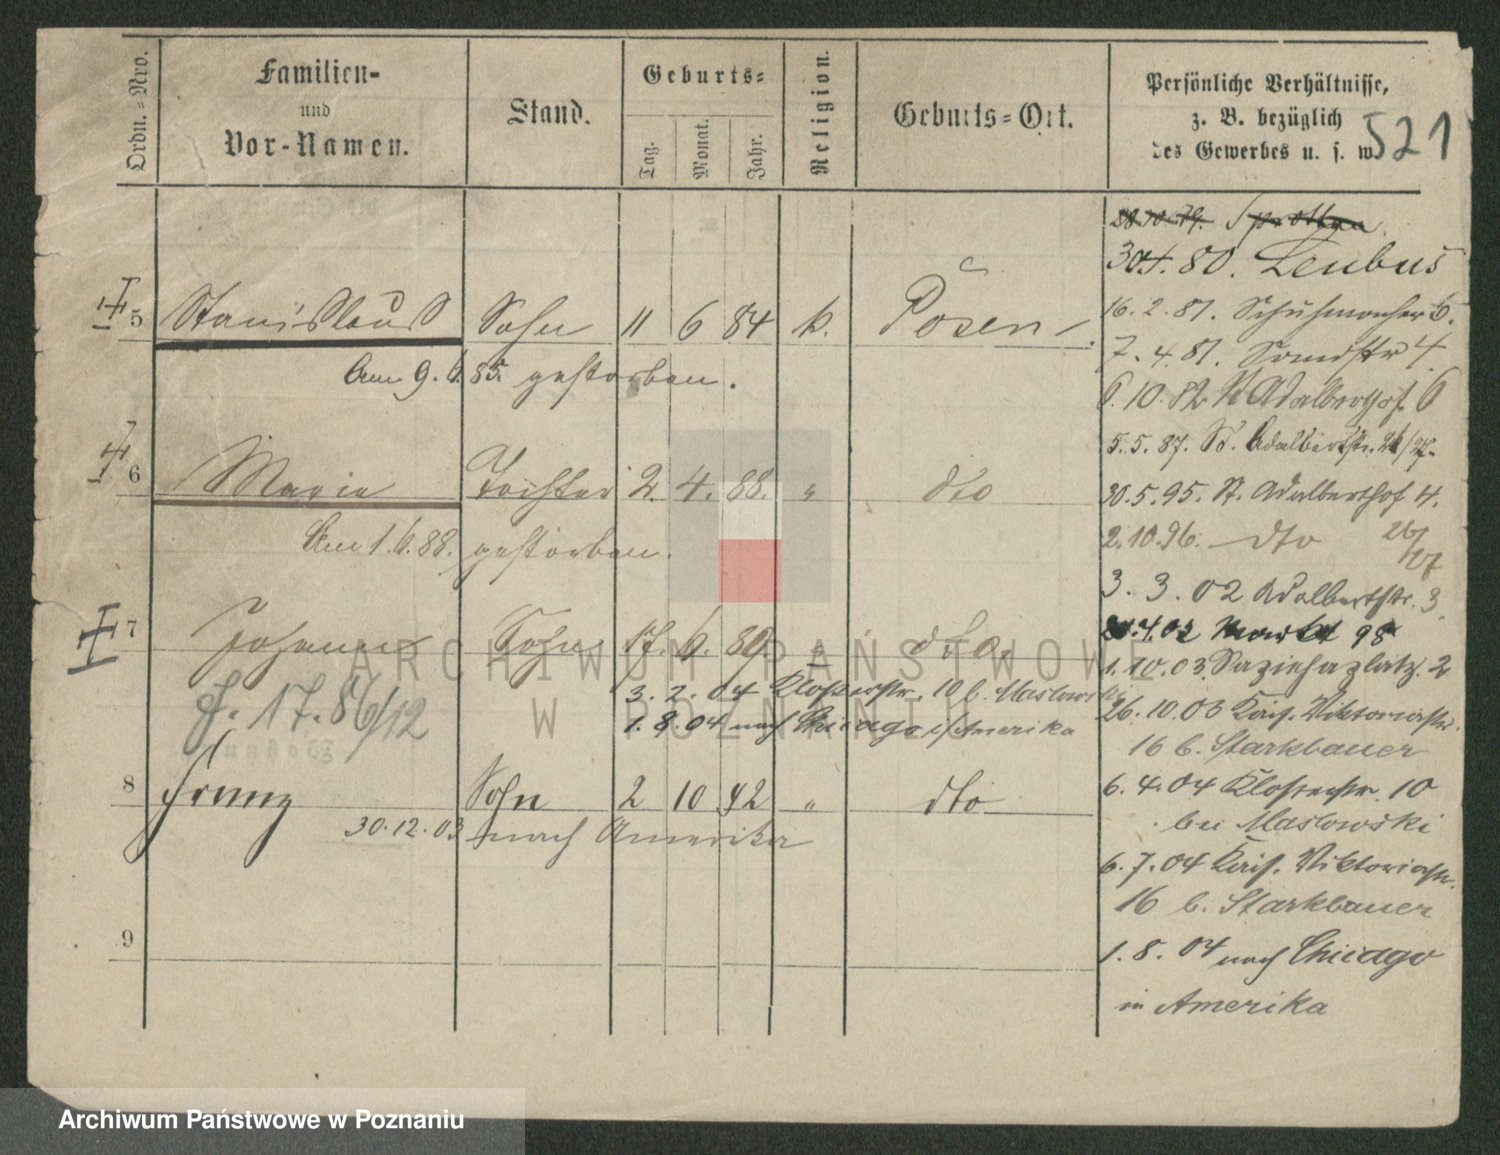 Ordn.=Nro.
Familien-
und
Vor-Namen.
Stand.
Geburts=
Tag.
Monat.
Jahr.
Religion.
Geburts=Ort.
Persönliche Verhältnisse,
z. B. bezüglich
des Gewerbes u. s. w.
521
28.10.79. Sprottau
30.4.80. Leubus
5 Stanislaus Sohn 11 6 84 k. Posen
16.2.81. Schuhmacher 5.
7.4.81.
Am 9.6.85. gestorben.
6.10.82 St Adalberthof 6
5.5.87. St. Adalbertstr.
6 Marie Tochter 2. 4. 88. " dto
30.5.95. St. Adalberthof 4.
Am 1.6.88. gestorben.
2.10.96. dto
3.3.02 Adalbertstr. 3
7 Johann Sohn 17. 6. 89 " dto.
4.02 Markt 98
1.10.03. Sapiehaplatz. 2
J. 17.86/12
3.2.04 Klosterstr. 10 b. Maslowski
26.10.03 Kais. Viktoriastr.
1.8.04 nach Chicago i/Amerika
16 b. Starkbauer
8 Franz Sohn 2 10 92 " dto
6.4.04 Klosterstr. 10
bei Maslowski
30.12.03 nach Amerika
6.7.04 Kais. Viktoriastr.
16 b. Starkbauer
9
1.8.04 nach Chicago
in Amerika
ARCHIWUM PAŃSTWOWE
W POZNANIU
Archiwum Państwowe w Poznaniu